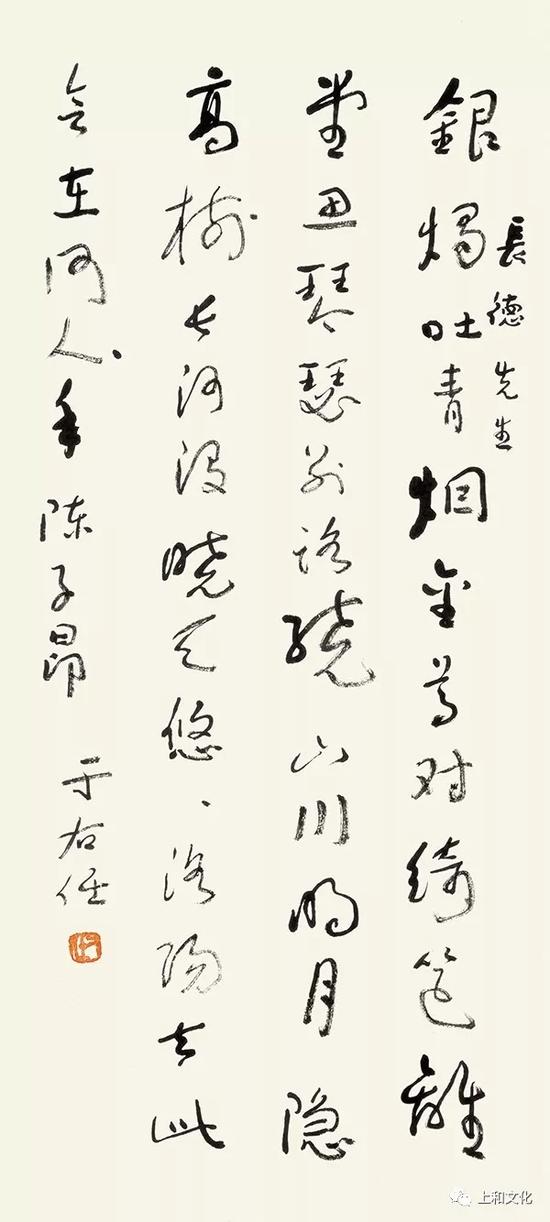 長德先生
銀燭吐青烟金尊对綺筵離
堂思琴瑟别路繞山川明月隐
高樹长河没曉天悠、洛阳去此
会在何人、年 陈子昂
于右任
上和文化